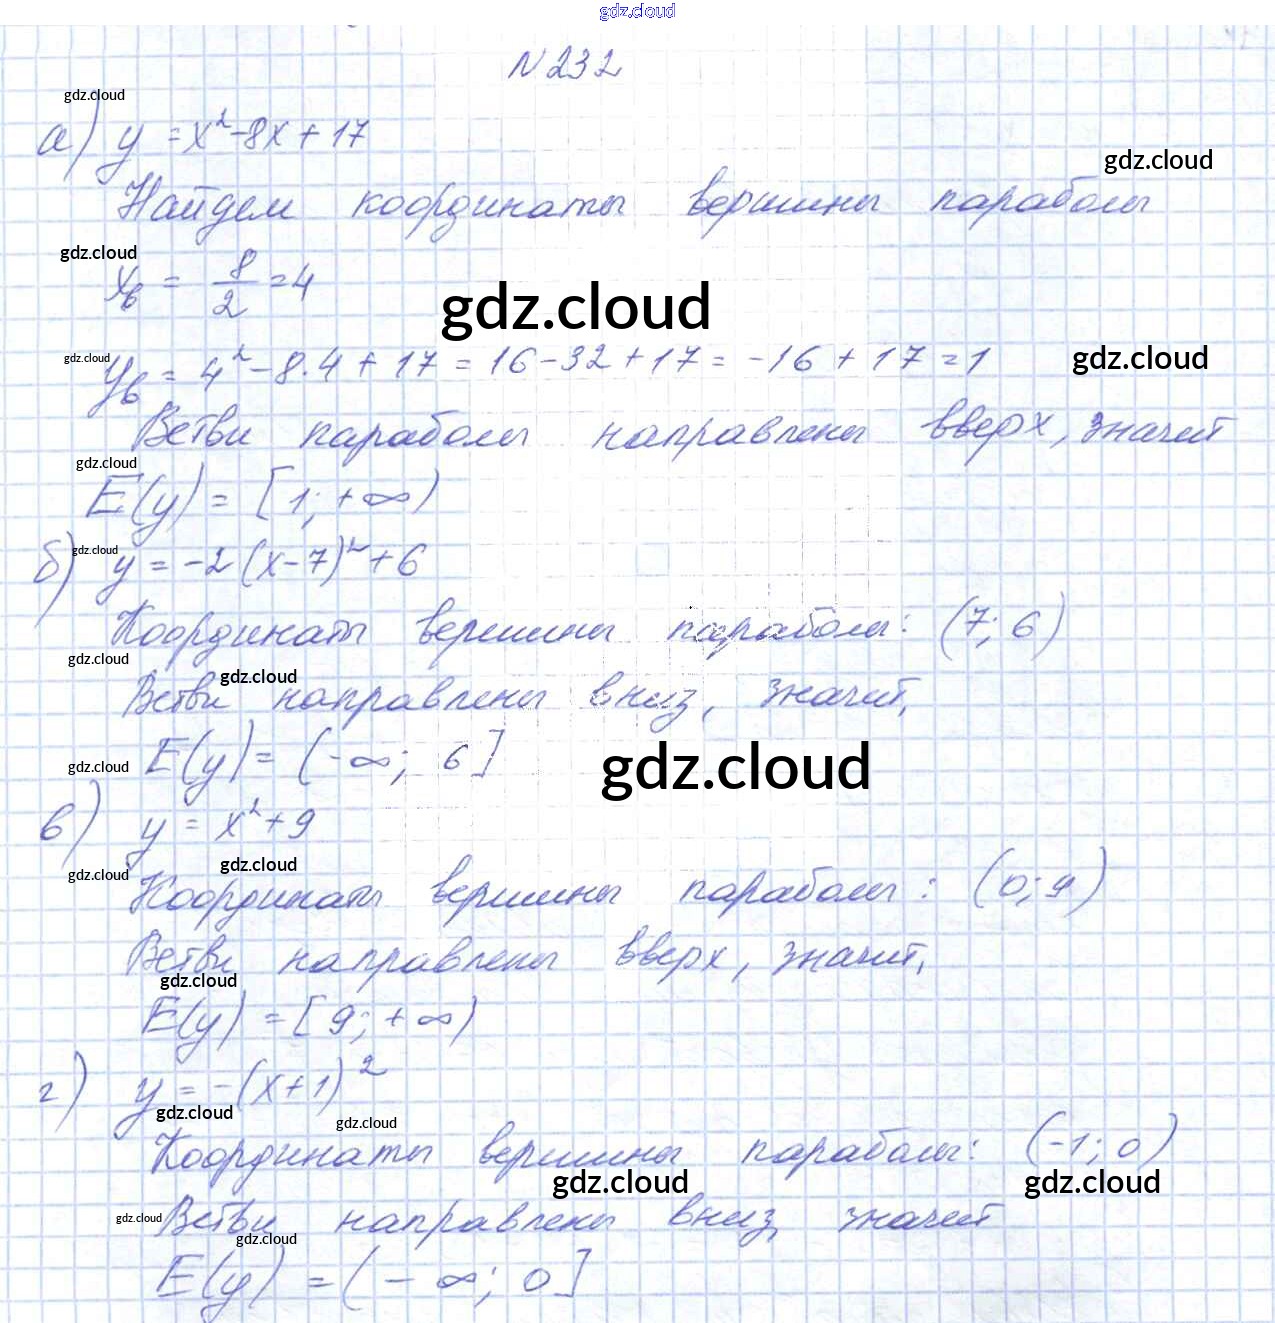 gdz.cloud
N 232
gdz.cloud
а) y = x² - 8x + 17
gdz.cloud
Найдем координаты вершины параболы
gdz.cloud
xв = 8/2 = 4
gdz.cloud
gdz.cloud
yв = 4² - 8·4 + 17 = 16 - 32 + 17 = -16 + 17 = 1
gdz.cloud
Ветви параболы направлены вверх, значит
gdz.cloud
E(y) = [1; +∞)
gdz.cloud
б) y = -2(x-7)² + 6
Координаты вершины параболы: (7; 6)
gdz.cloud
gdz.cloud
Ветви направлены вниз, значит,
E(y) = (-∞; 6]
gdz.cloud
gdz.cloud
в) y = x² + 9
gdz.cloud
gdz.cloud
Координаты вершины параболы: (0; 9)
Ветви направлены вверх, значит,
gdz.cloud
E(y) = [9; +∞)
г) y = -(x+1)²
gdz.cloud
gdz.cloud
Координаты вершины параболы: (-1; 0)
gdz.cloud
gdz.cloud
gdz.cloud
Ветви направлены вниз, значит
gdz.cloud
E(y) = (-∞; 0]